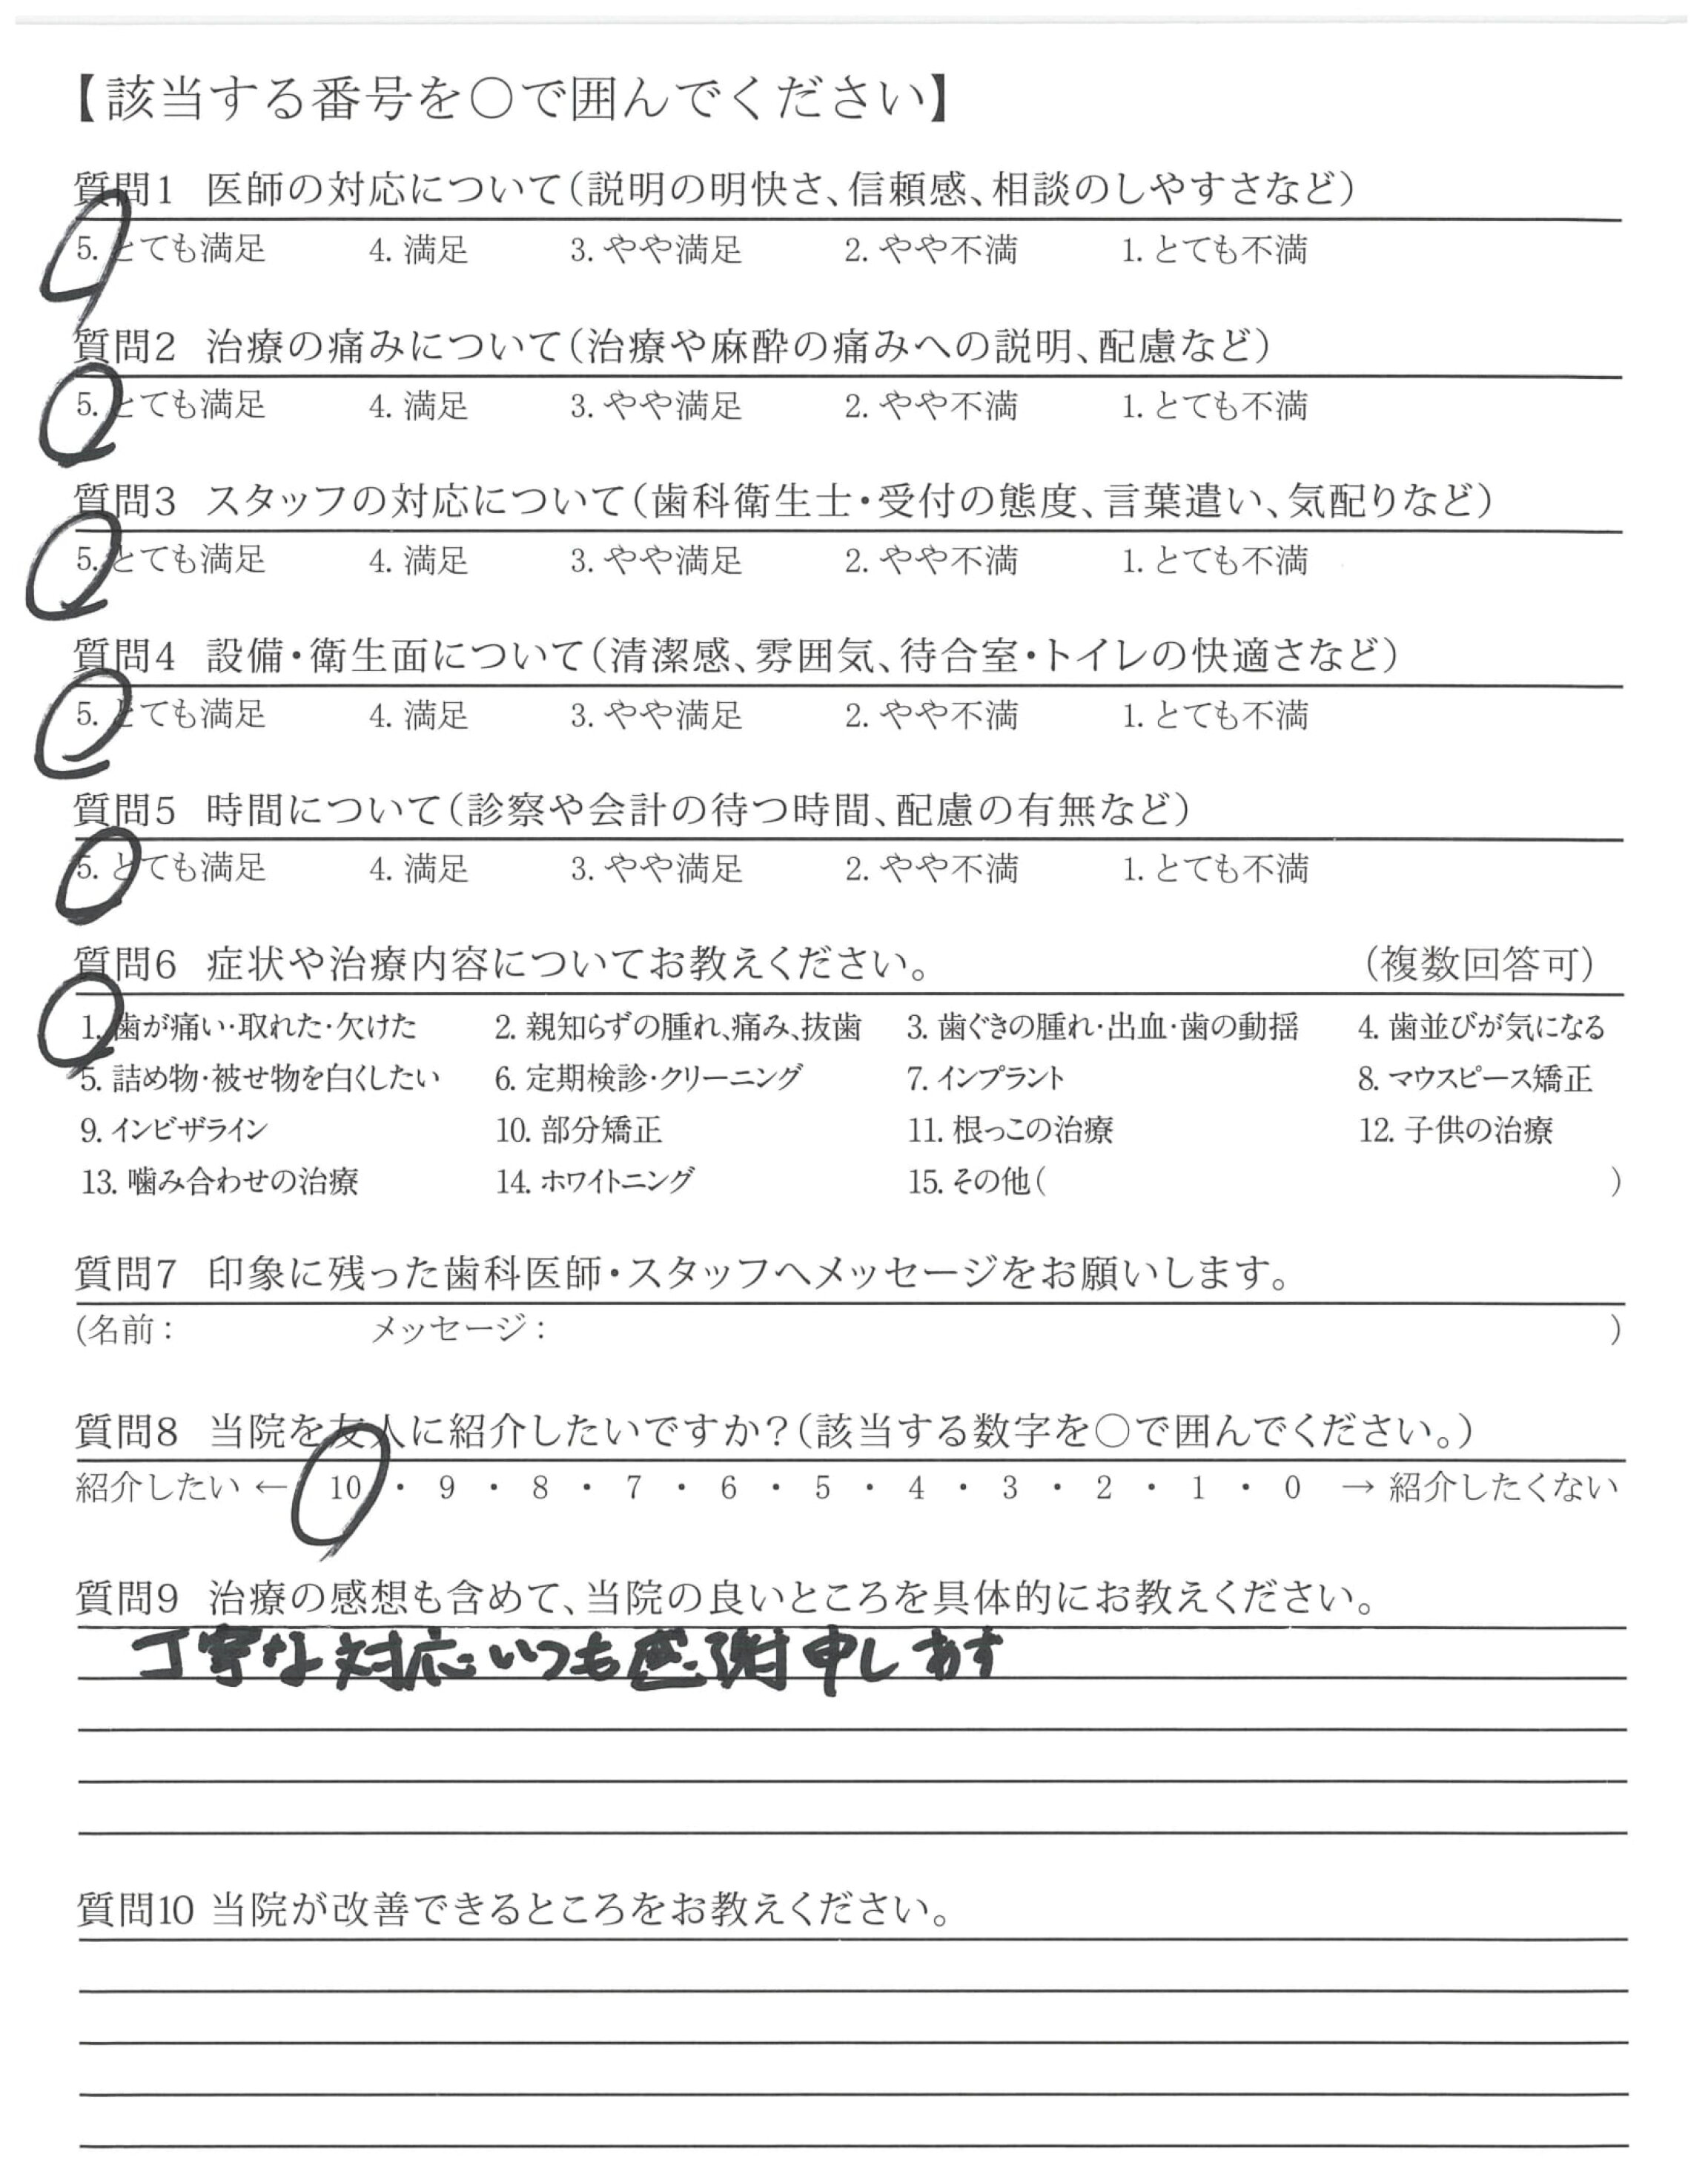 【該当する番号を○で囲んでください】
質問1 医師の対応について(説明の明快さ、信頼感、相談のしやすさなど)
5. とても満足 4. 満足 3. やや満足 2. やや不満 1. とても不満
質問2 治療の痛みについて(治療や麻酔の痛みへの説明、配慮など)
5. とても満足 4. 満足 3. やや満足 2. やや不満 1. とても不満
質問3 スタッフの対応について(歯科衛生士・受付の態度、言葉遣い、気配りなど)
5. とても満足 4. 満足 3. やや満足 2. やや不満 1. とても不満
質問4 設備・衛生面について(清潔感、雰囲気、待合室・トイレの快適さなど)
5. とても満足 4. 満足 3. やや満足 2. やや不満 1. とても不満
質問5 時間について(診察や会計の待つ時間、配慮の有無など)
5. とても満足 4. 満足 3. やや満足 2. やや不満 1. とても不満
質問6 症状や治療内容についてお教えください。 (複数回答可)
1. 歯が痛い・取れた・欠けた 2. 親知らずの腫れ、痛み、抜歯 3. 歯ぐきの腫れ・出血・歯の動揺 4. 歯並びが気になる
5. 詰め物・被せ物を白くしたい 6. 定期検診・クリーニング 7. インプラント 8. マウスピース矯正
9. インビザライン 10. 部分矯正 11. 根っこの治療 12. 子供の治療
13. 噛み合わせの治療 14. ホワイトニング 15. その他( )
質問7 印象に残った歯科医師・スタッフへメッセージをお願いします。
(名前: メッセージ: )
質問8 当院を友人に紹介したいですか?(該当する数字を○で囲んでください。)
紹介したい ← 10 ・ 9 ・ 8 ・ 7 ・ 6 ・ 5 ・ 4 ・ 3 ・ 2 ・ 1 ・ 0 → 紹介したくない
質問9 治療の感想も含めて、当院の良いところを具体的にお教えください。
丁寧な対応いつも感謝申します
質問10 当院が改善できるところをお教えください。